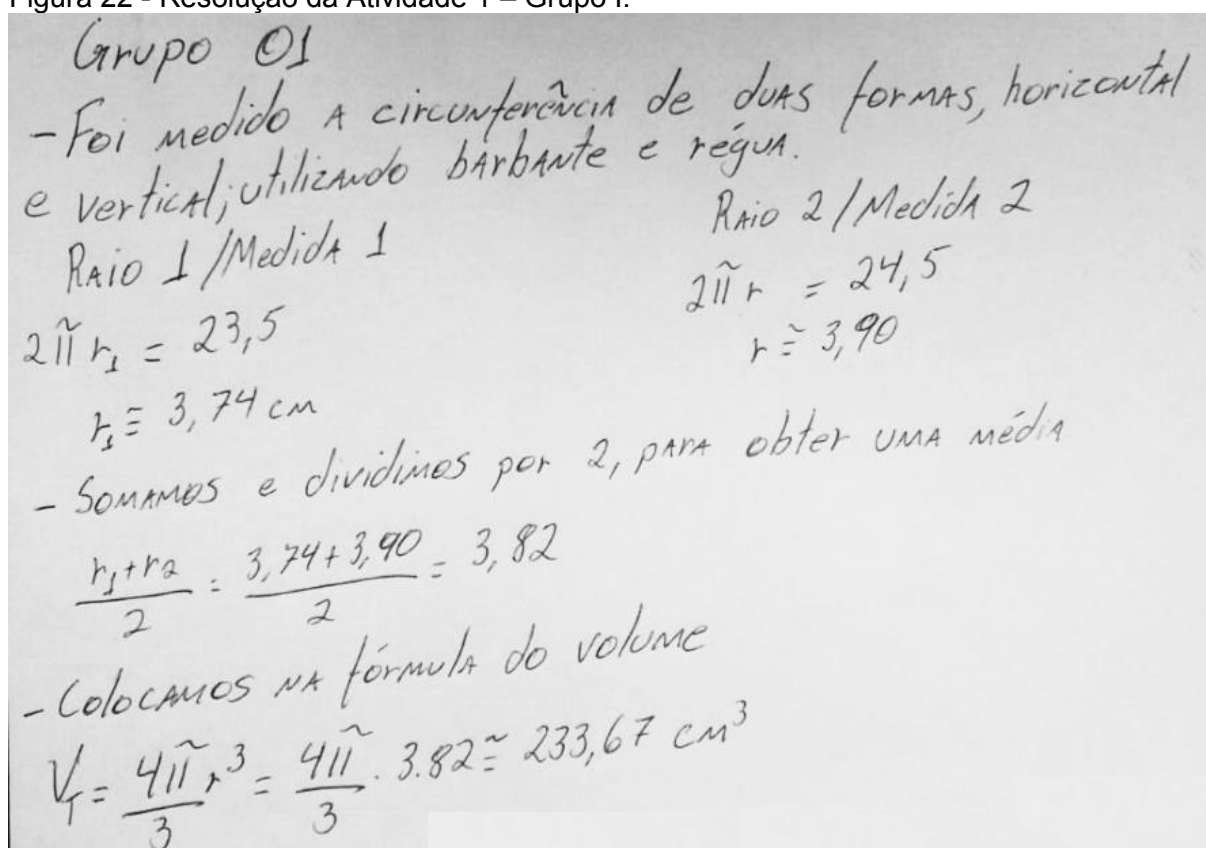 Figura 22 - Resolução da Atividade 1 – Grupo I.
Grupo 01
- Foi medido A circunferência de duas formas, horizontal
e vertical; utilizando barbante e régua.
Raio 1 / Medida 1
Raio 2 / Medida 2
2π r₁ = 23,5
2π r = 24,5
r₁ ≅ 3,74 cm
r ≅ 3,90
- Somamos e dividimos por 2, para obter uma média
(r₁+r₂)/2 = (3,74+3,90)/2 = 3,82
- Colocamos na fórmula do volume
V_T = 4π/3 r³ = 4π/3 . 3.82 ≅ 233,67 cm³